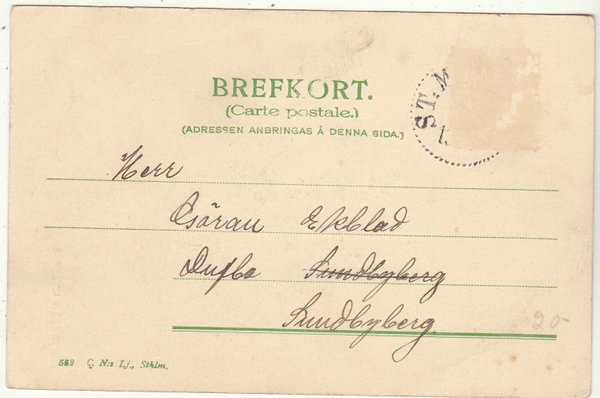 BREFKORT.
(Carte postale.)
(ADRESSEN ANBRINGAS Å DENNA SIDA.)
ST. M
Herr
Göran Ekblad
Dufbo Sundbyberg
Sundbyberg
20-
552 C. N:s Lj., Sthlm.